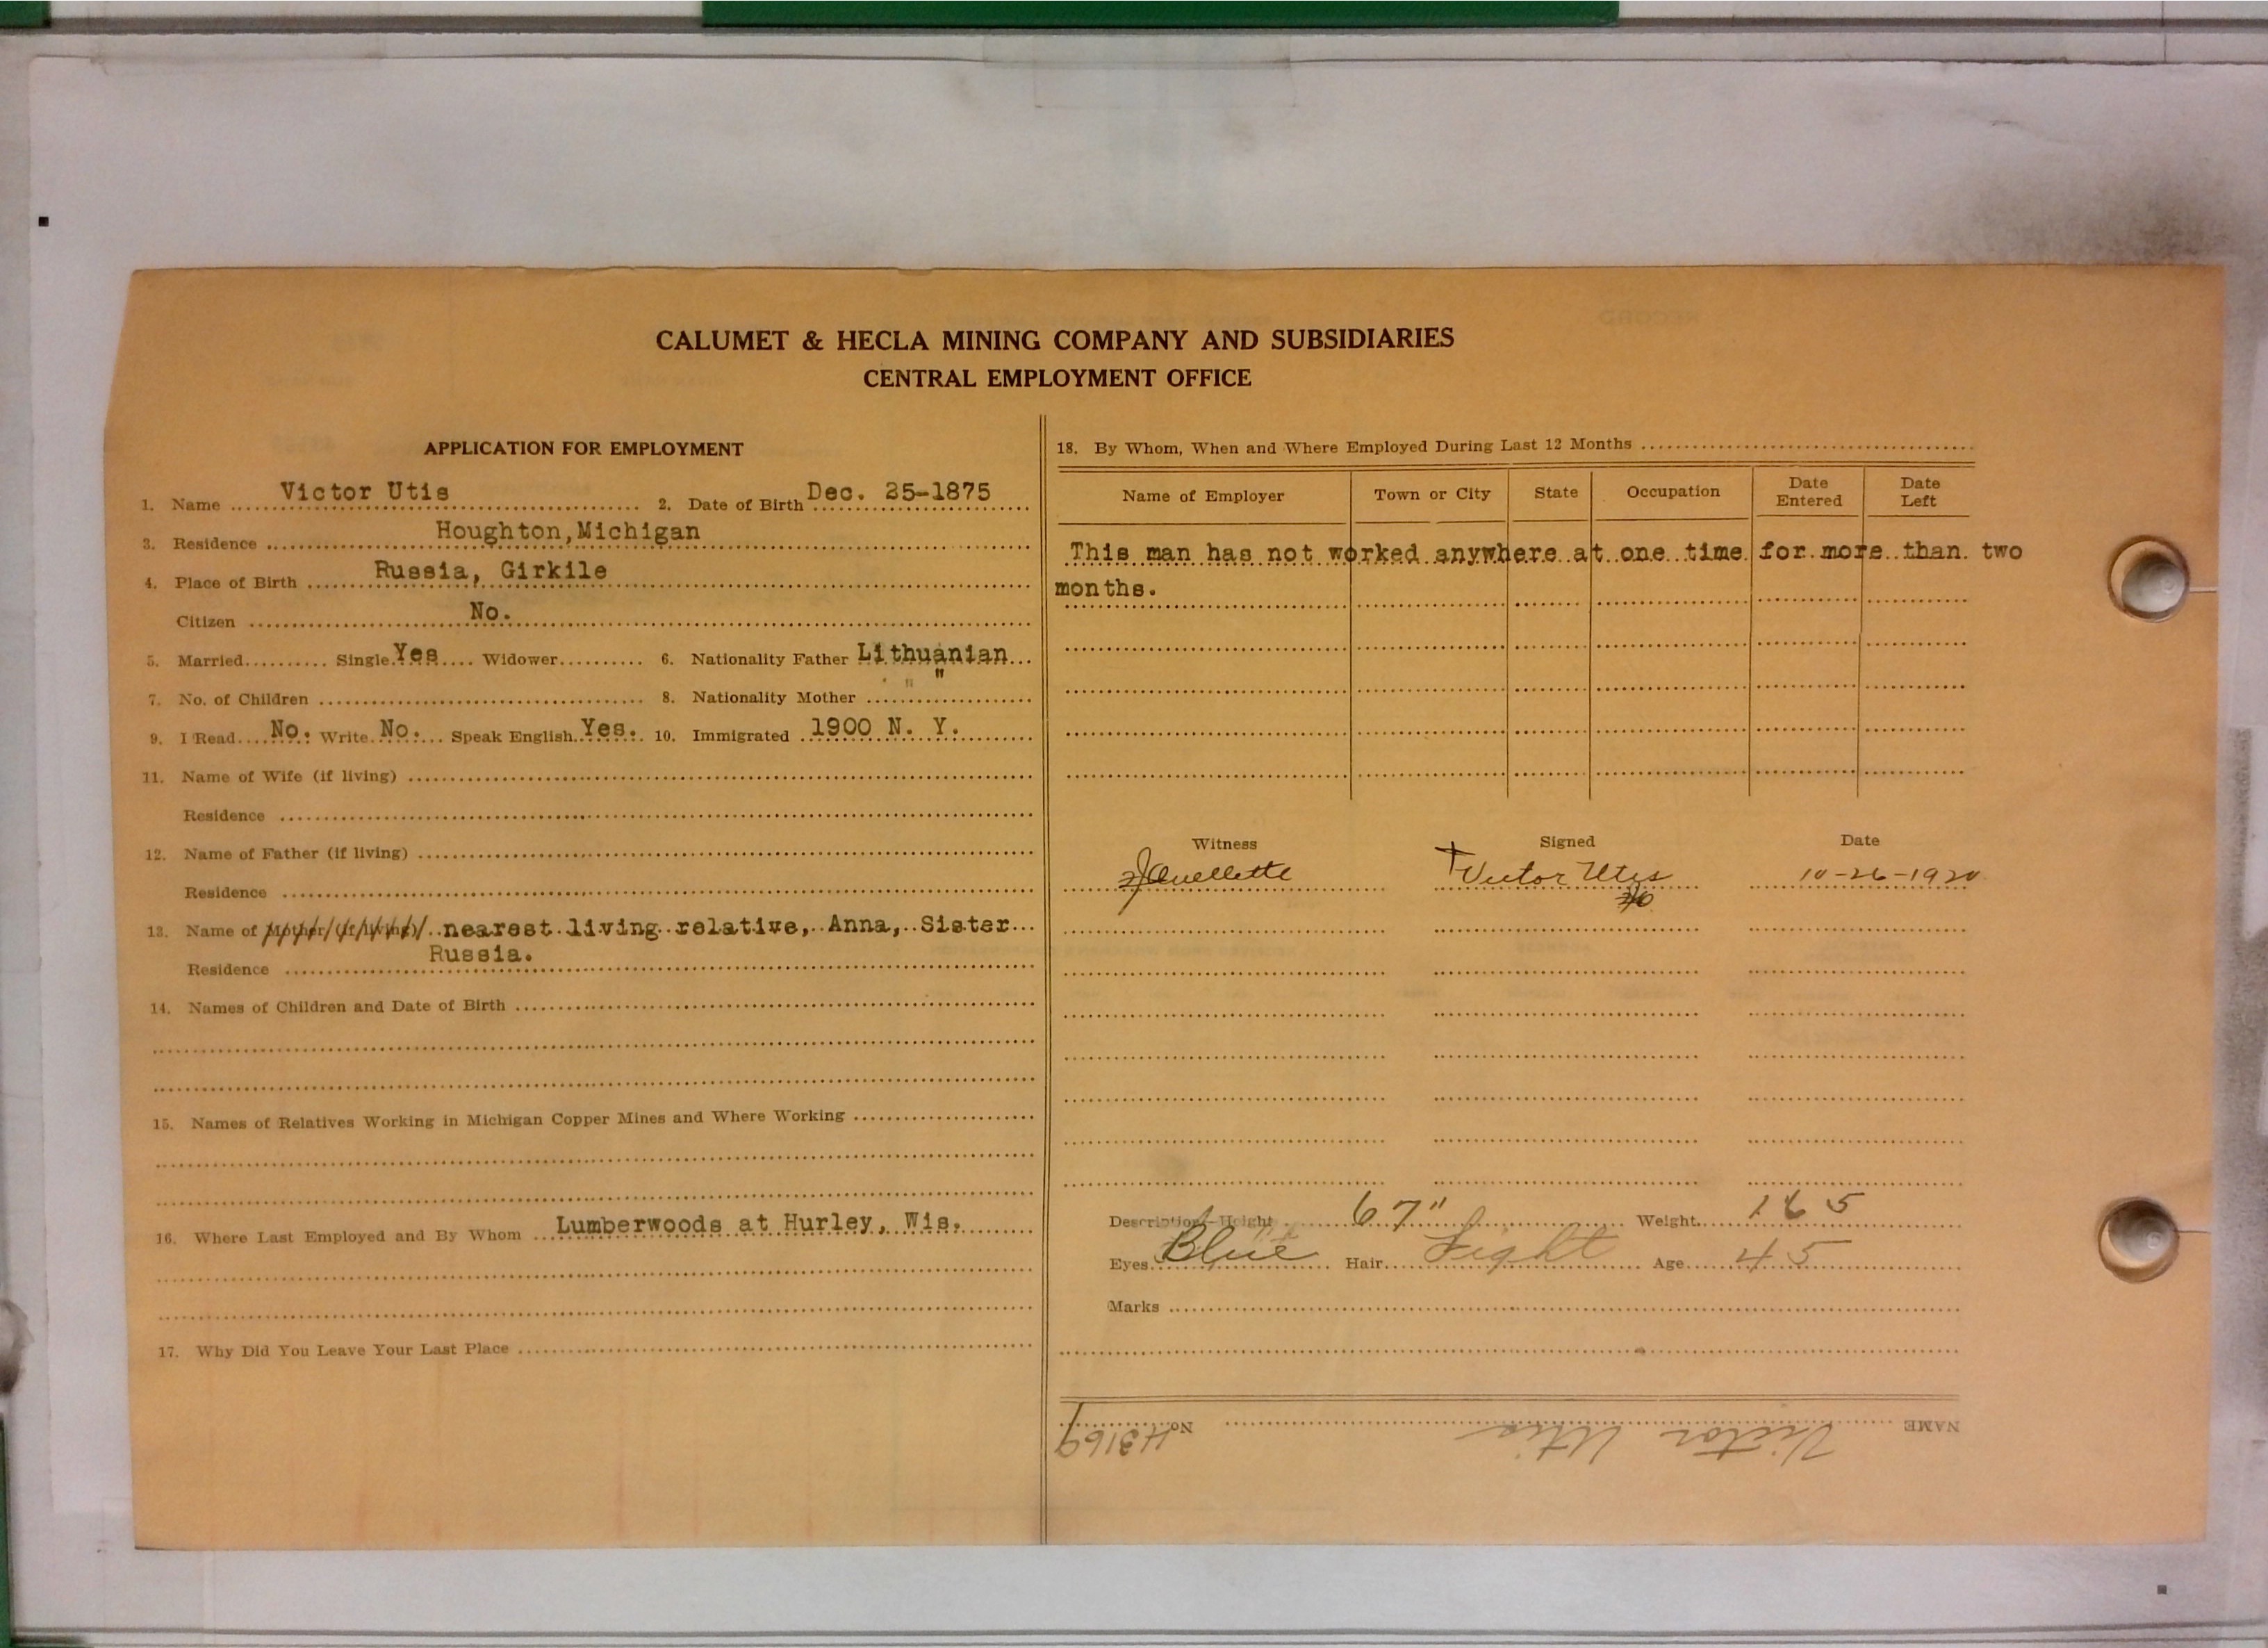 CALUMET & HECLA MINING COMPANY AND SUBSIDIARIES
CENTRAL EMPLOYMENT OFFICE
APPLICATION FOR EMPLOYMENT
1. Name Victor Utis 2. Date of Birth Dec. 25-1875
3. Residence Houghton,Michigan
4. Place of Birth Russia, Girkile
Citizen No.
5. Married Single Yes Widower 6. Nationality Father Lithuanian
7. No. of Children 8. Nationality Mother " "
9. I Read No. Write No. Speak English Yes. 10. Immigrated 1900 N. Y.
11. Name of Wife (if living)
Residence
12. Name of Father (if living)
Residence
13. Name of Mother (if living) nearest living relative, Anna, Sister
Residence Russia.
14. Names of Children and Date of Birth
15. Names of Relatives Working in Michigan Copper Mines and Where Working
16. Where Last Employed and By Whom Lumberwoods at Hurley, Wis.
17. Why Did You Leave Your Last Place
18. By Whom, When and Where Employed During Last 12 Months
Name of Employer Town or City State Occupation Date Entered Date Left
This man has not worked anywhere at one time for more than two
months.
Witness Signed Date
Ouellette Victor Utis 10-26-1920
Description—Height 67" Weight 165
Eyes Blue Hair Light Age 45
Marks
NAME Victor Utis No. 43169